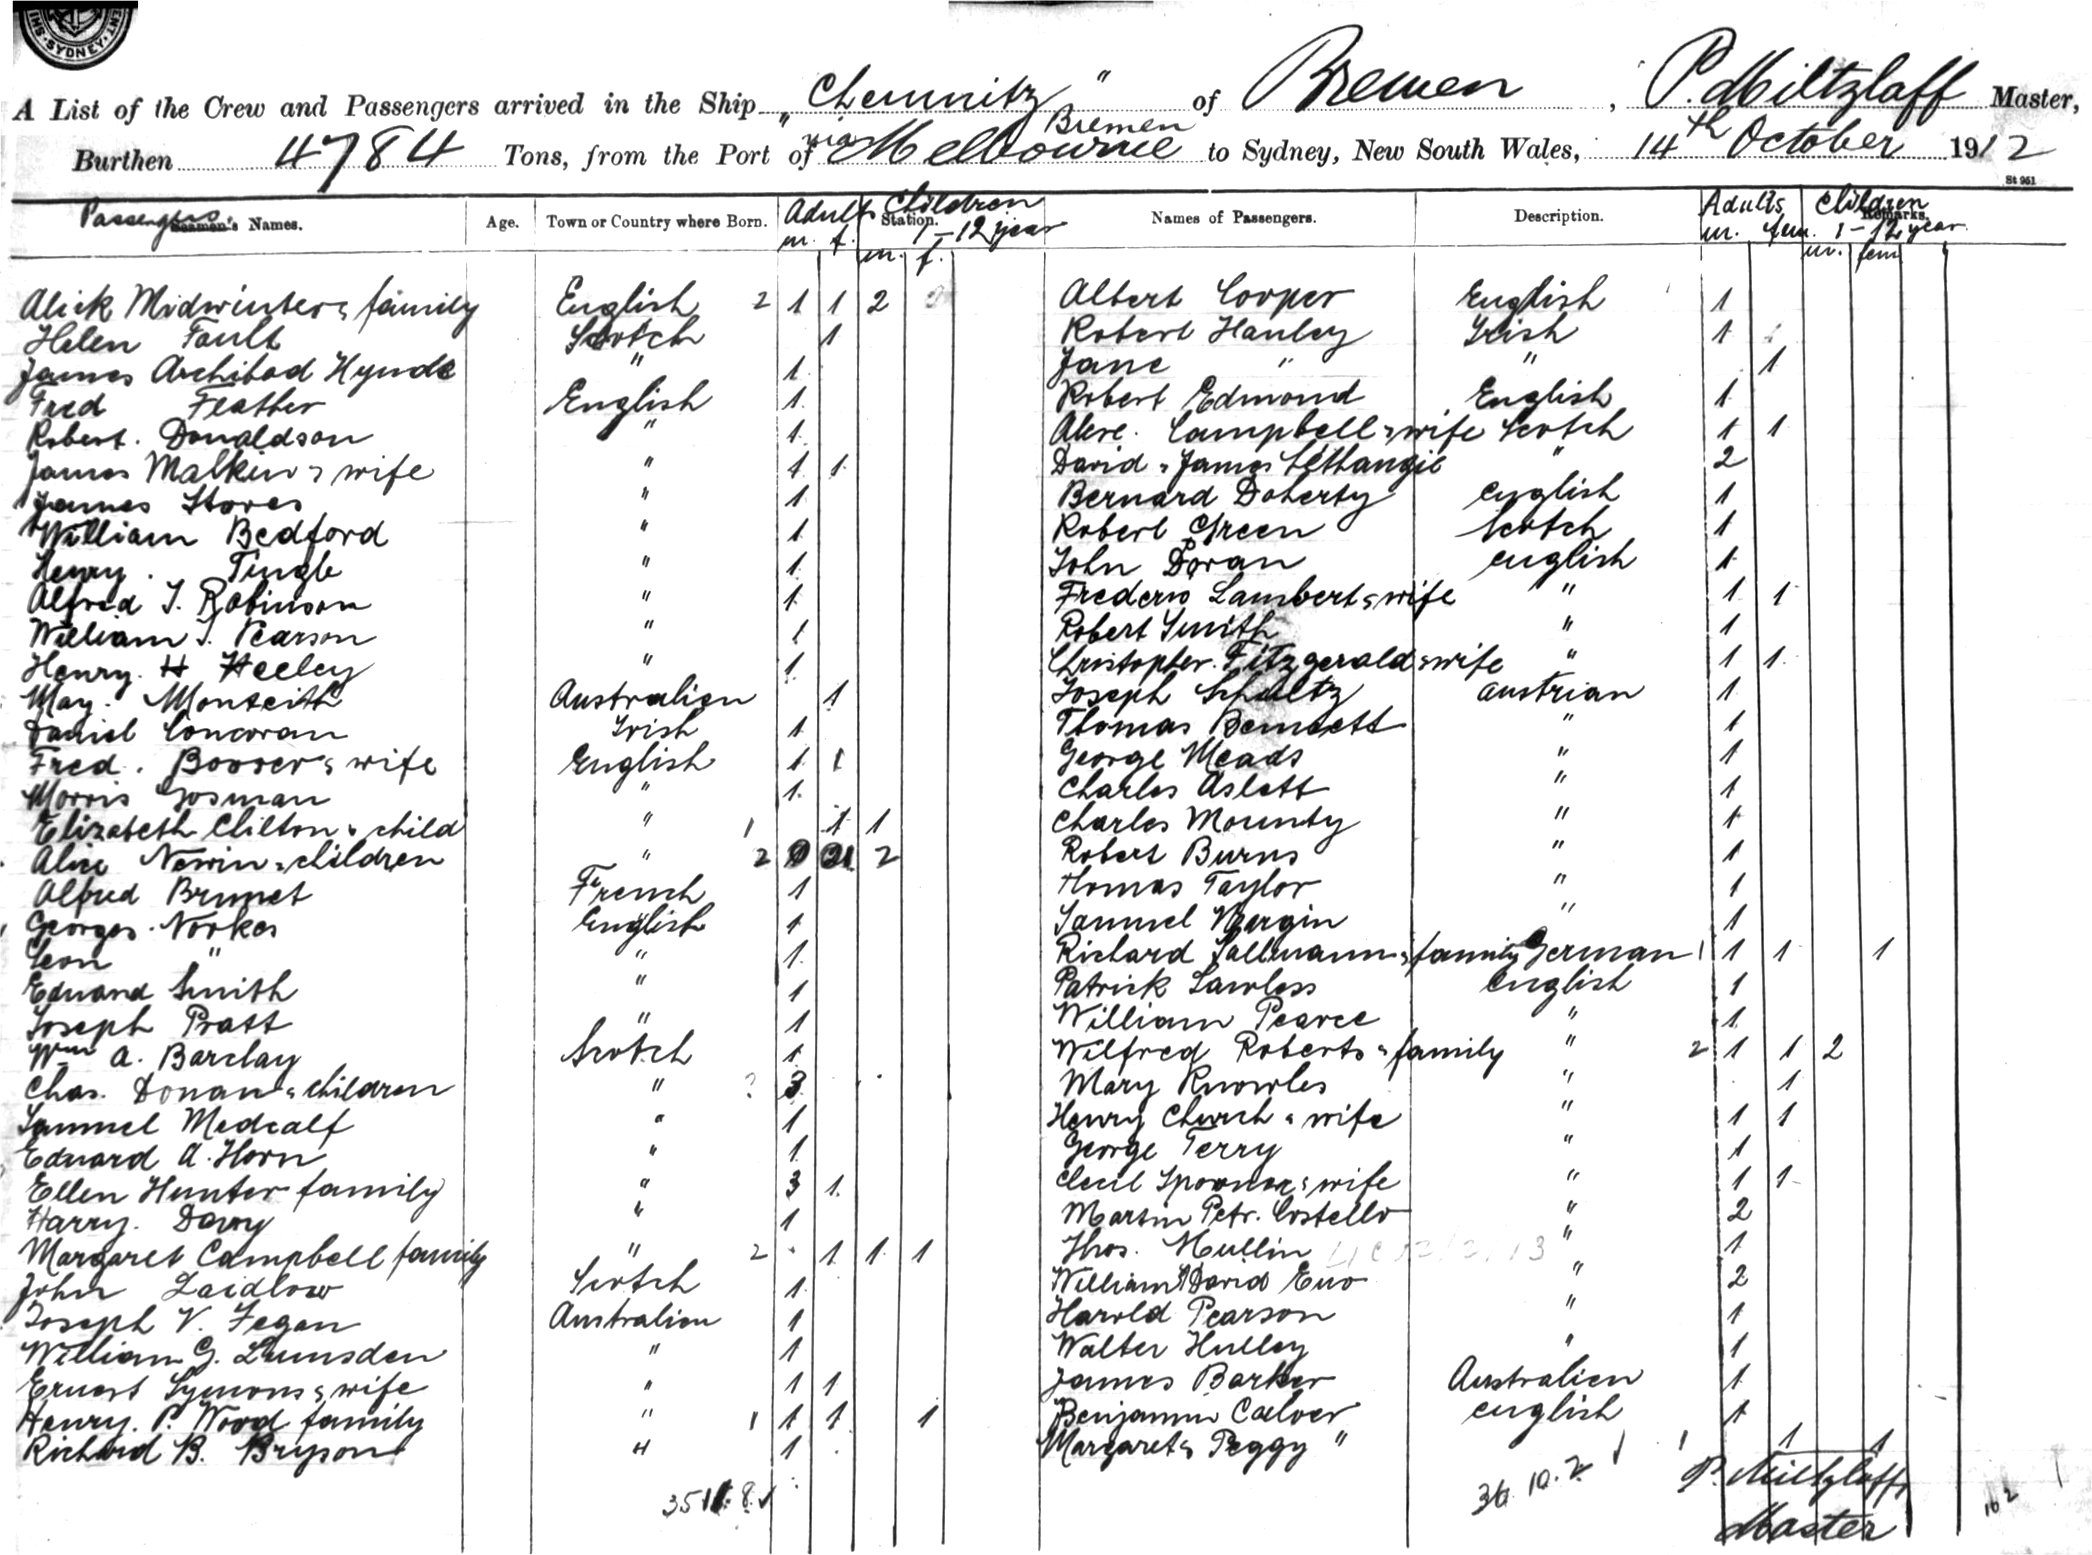 SYDNEY
A List of the Crew and Passengers arrived in the Ship "Chemnitz" of Bremen, P. Miltzlaff Master,
Bremen
Burthen 4784 Tons, from the Port of via Melbourne to Sydney, New South Wales, 14th October 1912
St 951
Passengers Seamen's Names. Age. Town or Country where Born. Adults Station. Children 1-12 year Names of Passengers. Description. Adults Remarks. Children 1-12 year
m. f. m. f. m. fem. m. fem
Alick Midwinter & family English 2 1 1 2
Helen Fault Scotch 1
James Archibad Hynds " 1
Fred Feather English 1
Robert. Donaldson " 1
James Malkin & wife " 1 1
James Stores " 1
William Bedford " 1
Henry. Tingle " 1
Alfred T. Robinson " 1
William T. Pearson " 1
Henry. H Heeley " 1
May. Monteith Australien 1
Daniel Concoran Irish 1
Fred. Boover & wife English 1 1
Morris Gosman " 1
Elizabeth Clilton & child " 1 1 1
Alice Newin & children " 2 2
Alfred Brunet French 1
Georges Norkes English 1
Leon " " 1
Eduard Smith " 1
Joseph Pratt " 1
Wm A. Barclay Scotch 1
Chas. Donan & children " ? 3
Samuel Medcalf " 1
Eduard A. Horn " 1
Ellen Hunter family " 3 1
Harry. Davy " 1
Margaret Campbell family " 2 1 1 1
John Laidlow Scotch 1
Joseph V. Fegan Australien 1
William G. Lumsden " 1
Ernest Symons & wife " 1 1
Henry. P. Wood family " 1 1 1 1
Richard B. Bryson " 1
Albert Cooper English 1
Robert Hanley Irish 1
Jane " " 1
Robert Edmond English 1
Alexe. Campbell & wife Scotch 1 1
David & James Lethangie " 2
Bernard Doherty english 1
Robert Green Scotch 1
John Doran english 1
Frederic Lambert & wife " 1 1
Robert Smith " 1
Christopher Fitzgerald & wife " 1 1
Joseph Schultz austrian 1
Thomas Bennett " 1
George Meads " 1
Charles Aslett " 1
Charles Mounty " 1
Robert Burns " 1
Thomas Taylor " 1
Samuel Bergin " 1
Richard Sallmann & family German 1 1 1 1
Patrick Lawless english 1
William Pearce " 1
Wilfred Roberts & family " 2 1 1 2
Mary Knowles " 1
Henry Church & wife " 1 1
George Terry " 1
Cecil & wife " 1 1
Martin Petr. Costello " 2
Thos. Mullin " 1
William & David Euo " 2
Harold Pearson " 1
Walter Hulley " 1
James Barker Australien 1
Benjamin Calver english 1
Margaret & Peggy " 1 1 1
36 10. 2
P. Miltzlaff
Master